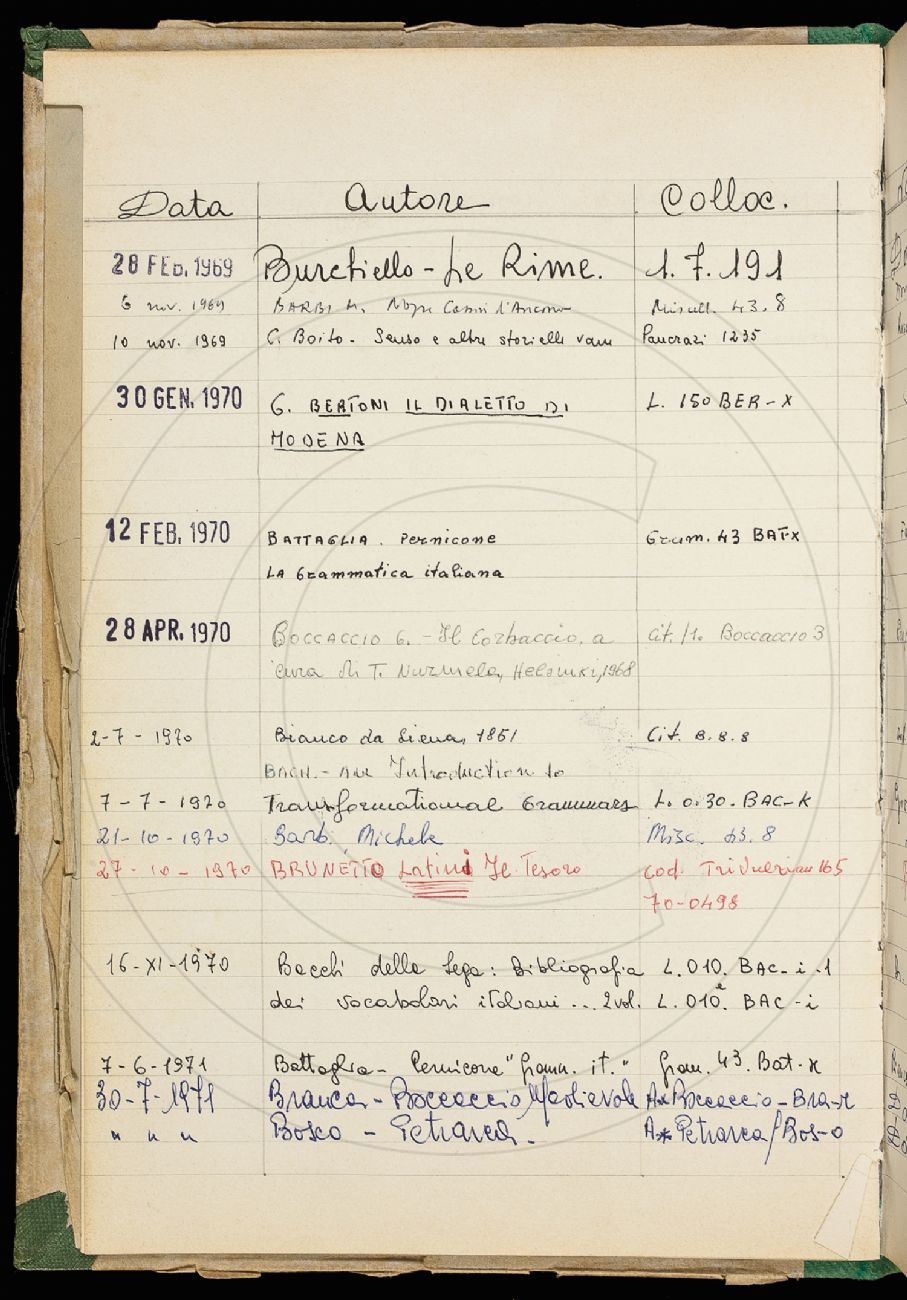 Data Autore Colloc.
28 FEB. 1969 Burchiello - Le Rime. 1. 7. 191
6 nov. 1969 BARBI M. d'Ancona Miscell. 43. 8
10 nov. 1969 C. Boito - Senso e altre storielle vane Pancrazi 1235
30 GEN. 1970 G. BERTONI IL DIALETTO DI L. 150 BER-X
MODENA
12 FEB. 1970 BATTAGLIA. Pernicone Gram. 43 BAT-X
LA Grammatica italiana
28 APR. 1970 BOCCACCIO G. - Il Corbaccio, a Cit. M. Boccaccio 3
cura di T. Nurmela, Helsinki, 1968
2-7-1970 Bianco da Siena, 1851 Cit. B. 8. 8
BACH. - An Introduction to
7-7-1970 Transformational Grammars L. 030. BAC-K
21-10-1970 Barbi, Michele Misc. 43. 8
27-10-1970 BRUNETTO Latini Il Tesoro cod. Trivulziano 165
70-0498
16-XI-1970 Bacchi della Lega: Bibliografia L. 010. BAC-i-1
dei vocabolari italiani .. 2 vol. L. 010. BAC-i
7-6-1971 Battaglia - Pernicone "Gramm. it." Gram. 43. Bat-x
30-7-1971 Branca - Boccaccio Medievale A* Boccaccio - Bra-r
" " " Bosco - Petrarca - A* Petrarca/Bos-o